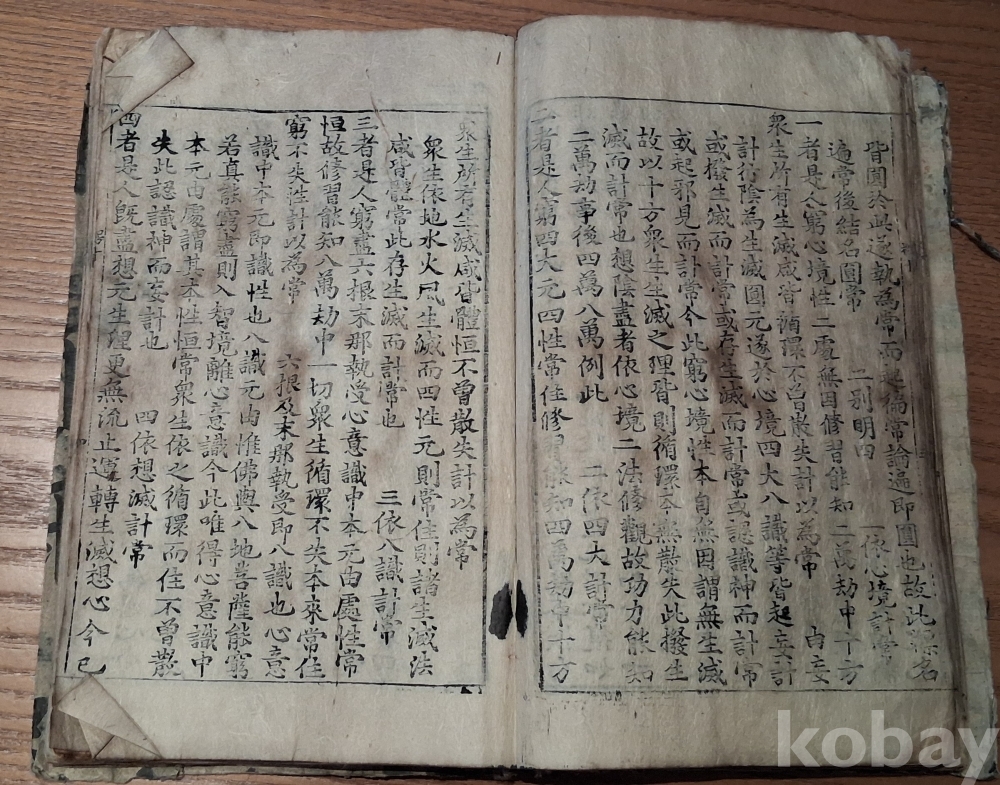 皆圓於此遂執為常而起徧常論遍即圓也故此標名
遍常後結名圓常　二別明四　一依心境計常
一者是人窮心境性二處無因修習能知二萬劫中十方
衆生所有生滅咸皆循環不曾散失計以為常
計行陰為生滅圓元遂於心境四大八識等皆起妄計
或撥生滅而計常或存生滅而計常或認識神而計常
或起邪見而計常今此窮心境性本自無因謂無生滅
故以十方衆生生滅之理皆則循環本無散失此撥生
滅而計常也想陰盡者依心境二法修觀故功力能知
二萬劫事後四萬八萬例此　二依四大計常
二者是人窮四大元四性常住修習能知四萬劫中十方
衆生所有生滅咸皆體恒不曾散失計以為常
衆生依地水火風生滅而四性元則常住則諸生滅法
咸皆體常此存生滅而計常也　三依八識計常
三者是人窮盡六根末那執受心意識中本元由處性常
恒故修習能知八萬劫中一切衆生循環不失本來常住
窮不失性計以為常　六根及末那執受即八識也心意
識中本元即識性也八識元由惟佛與八地菩薩能窮
若真能窮盡則入智境離心意識今此唯得心意識中
本元由處謂其本性恒常衆生依之循環而住不曾散
失此認識神而妄計也　四依想滅計常
四者是人既盡想元生理更無流止運轉生滅想心今已
kobay